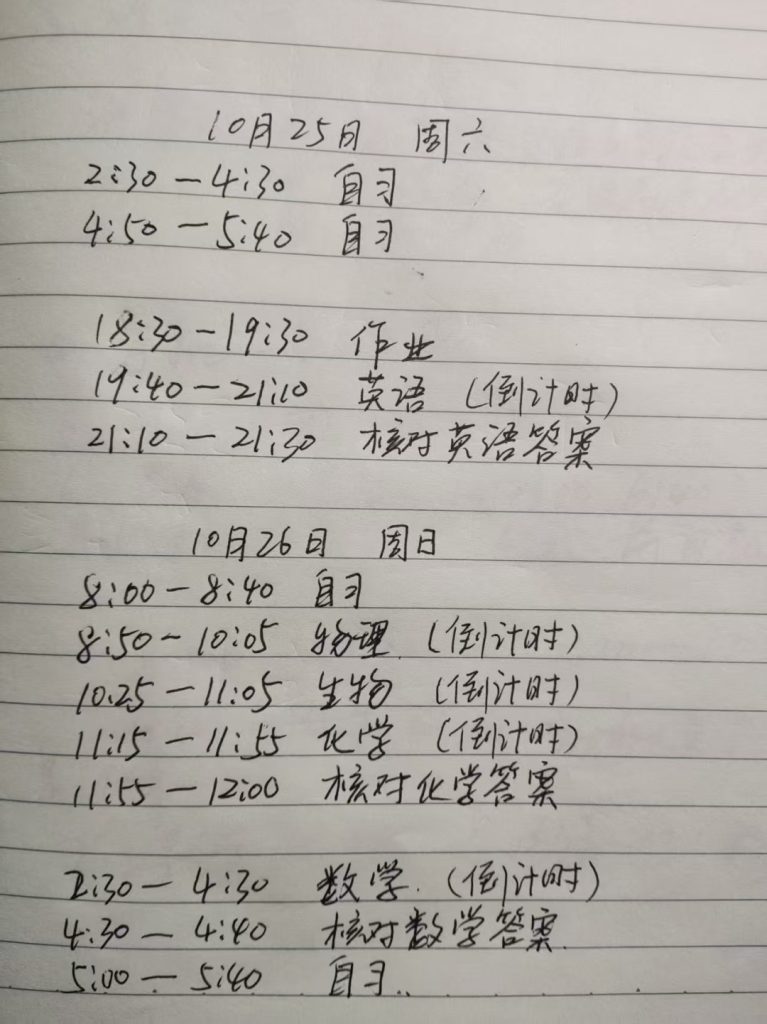 10月25日 周六
2:30—4:30 自习
4:50—5:40 自习
18:30—19:30 作业
19:40—21:10 英语 (倒计时)
21:10—21:30 核对英语答案
10月26日 周日
8:00—8:40 自习
8:50—10:05 物理 (倒计时)
10:25—11:05 生物 (倒计时)
11:15—11:55 化学 (倒计时)
11:55—12:00 核对化学答案
2:30—4:30 数学. (倒计时)
4:30—4:40 核对数学答案.
5:00—5:40 自习.